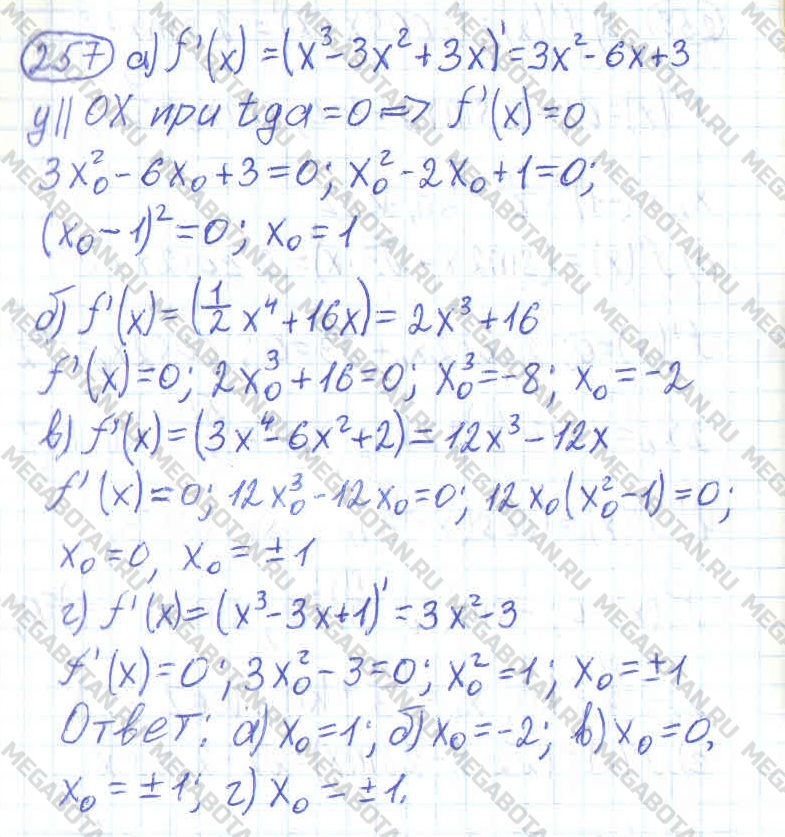 257 а) f'(x) = (x³ - 3x² + 3x)' = 3x² - 6x + 3
y || OX при tg a = 0 => f'(x) = 0
3x₀² - 6x₀ + 3 = 0; x₀² - 2x₀ + 1 = 0;
(x₀ - 1)² = 0; x₀ = 1
б) f'(x) = (1/2 x⁴ + 16x) = 2x³ + 16
f'(x) = 0; 2x₀³ + 16 = 0; x₀³ = -8; x₀ = -2
в) f'(x) = (3x⁴ - 6x² + 2) = 12x³ - 12x
f'(x) = 0; 12x₀³ - 12x₀ = 0; 12x₀(x₀² - 1) = 0;
x₀ = 0, x₀ = ±1
г) f'(x) = (x³ - 3x + 1)' = 3x² - 3
f'(x) = 0; 3x₀² - 3 = 0; x₀² = 1; x₀ = ±1
Ответ: а) x₀ = 1; б) x₀ = -2; в) x₀ = 0,
x₀ = ±1; г) x₀ = ±1.
MEGABOTAN.RU